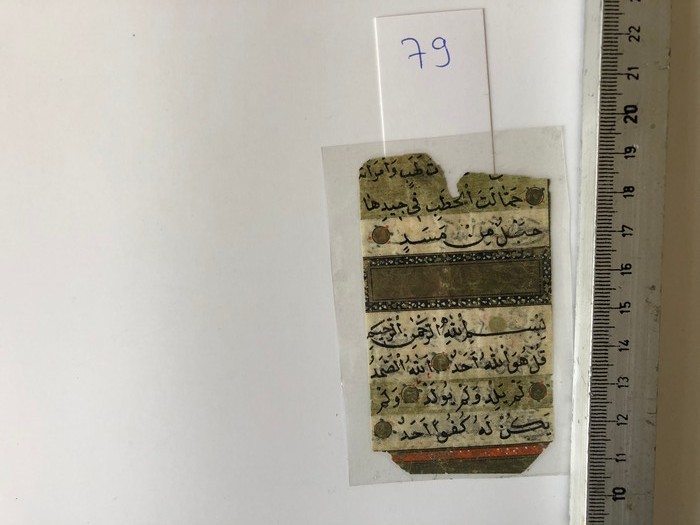 79
ت لَهَبٍ وَامْرَاَتُ
حَمَّالَتَ الْحَطَبِ فى جيدِهَا
حَبْلٌ مِنْ مَسَدٍ
بِسْــمِ اللهِ الرَّحْمٰنِ الرَّحيمِ
قُلْ هُوَ اللهُ اَحَدٌ اَللهُ الصَّمَدُ
لَمْ يَلِدْ وَلَمْ يُولَدْ وَلَمْ
يَكُنْ لَهُ كُفُوًا اَحَدٌ
22
21
20
19
18
17
16
15
14
13
12
11
10